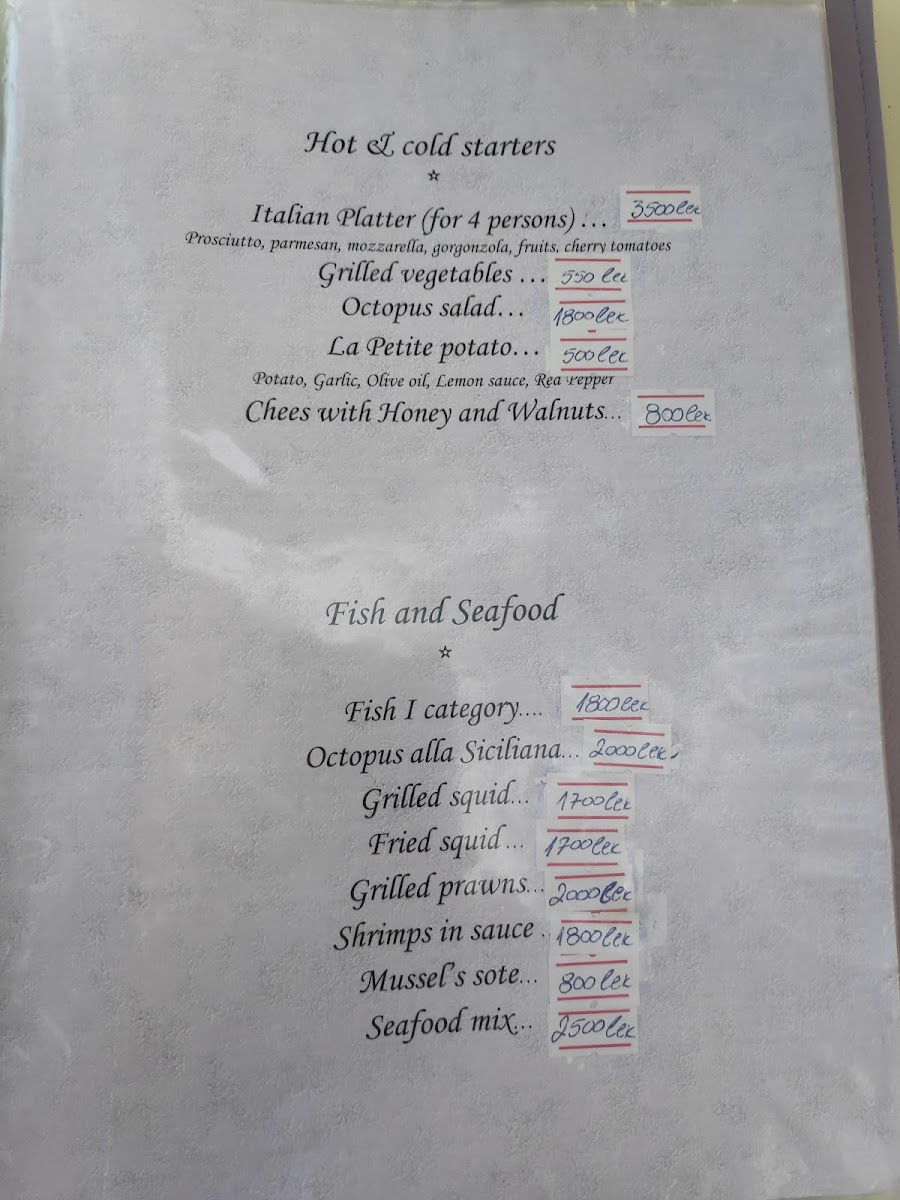 Hot & cold starters
☆
Italian Platter (for 4 persons) ... 3500 lek
Prosciutto, parmesan, mozzarella, gorgonzola, fruits, cherry tomatoes
Grilled vegetables ... 550 lek
Octopus salad... 1800 lek
La Petite potato... 500 lek
Potato, Garlic, Olive oil, Lemon sauce, Red Pepper
Chees with Honey and Walnuts... 800 lek
Fish and Seafood
☆
Fish I category.... 1800 lek
Octopus alla Siciliana... 2000 lek
Grilled squid... 1700 lek
Fried squid ... 1700 lek
Grilled prawns... 2000 lek
Shrimps in sauce . 1800 lek
Mussel's sote... 800 lek
Seafood mix... 2500 lek